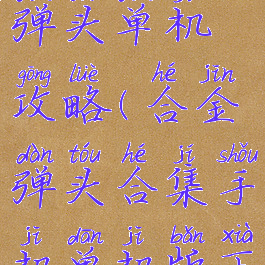 弹头单机
gōng lüè hé jīn
攻略(合金
dàn tóu hé jí shǒu
弹头合集手
jī dān jī bǎn xià
机单机版下